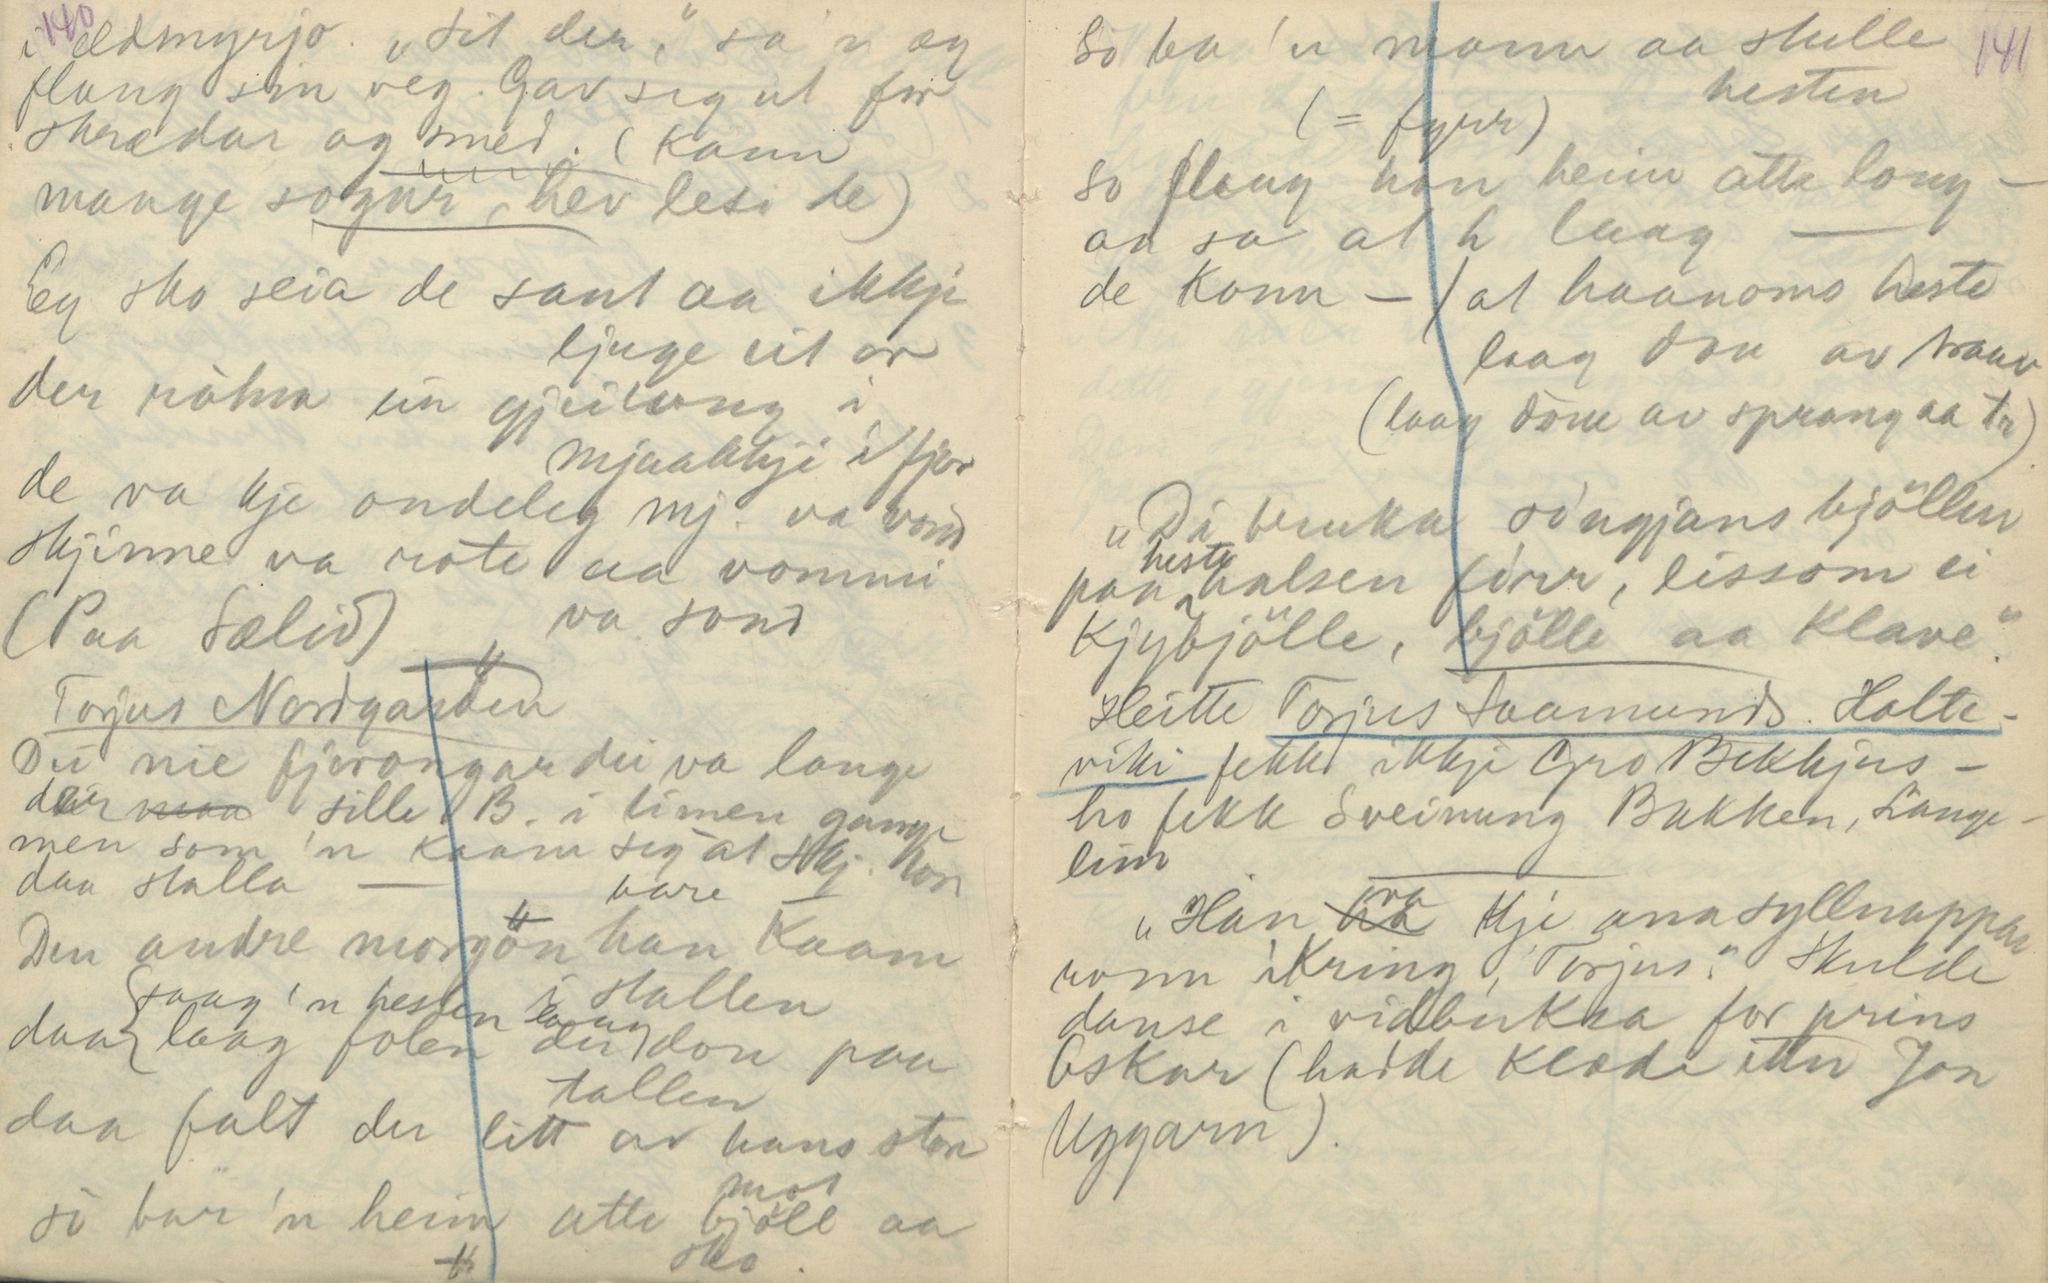 140
i eldmyrjo. „Sit der," sa 'n og
flaug sin veg. Gav sig ut for
skrædar og smed. (Kann
mange sogur, hev lesi de)
Eg sko seia de sant aa ikkje
ljuge eit or
der råtna ein gjeitong i
mjaakkji i fjor
de va kje ondeleg mj. va vond
skjinne va rote aa vommi
va sond
(Paa Sælid)
Torjus Nordgarden
Dei nie fjorongar dei va lange
der sille B. i timen gange
men som 'n Kaam seg at skj. hon
daa stalla — vare —
Den andre morgon han Kaam
i stallen
saag 'n hesten laag
daa laag folen der don paa
tallen
daa falt der litt av hans stor
mot
so bar 'n heim atte bjöll aa
sko.
141
So ba 'n mann aa skulle
hesten
(= fyrr)
so flaug han heim atte long —
aa sa at h laag —
de Konn — / at haanoms heste
laag don av traav
(laag döue av sprang aa tr)
„Di bruka singjans bjöllur
heste
paa halsen förr, lissom ei
Kjybjölle, bjölle aa Klave."
Heitte Torjus Saamunds. Holte-
viki fekk ikkje Gro Bekkhus —
ho fekk Sveinung Bakken, Lange-
lim
„Han va kje ana syllnappar
ronn ikring, Torjus." Skulde
danse i vidbukka for prins
Oskar (hadde klæde etter Jon
Uggarn).